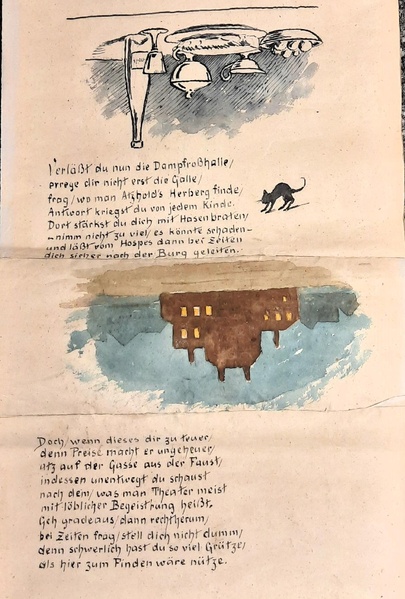 Verläßt du nun die Dampfroßhalle/
errege dir nicht erst die Galle/
frag/ wo man Atzhold's Herberg finde/
Antwort kriegst du von jedem Kinde.
Dort stärkst du dich mit Hasenbraten/
– nimm nicht zu viel/ es könnte schaden –
und läßt vom Hospes dann bei Zeiten
dich sicher nach der Burg geleiten.
Doch/ wenn dieses dir zu teuer/
denn Preise macht er ungeheuer/
atz auf der Gasse aus der Faust/
indessen unentwegt du schaust
nach dem/ was man Theater meist
mit löblicher Begeistrung heißt.
Geh gradeaus/ dann rechtherum/
bei Zeiten frag/ stell dich nicht dumm/
denn schwerlich hast du so viel Grütze/
als hier zum Finden wäre nütze.